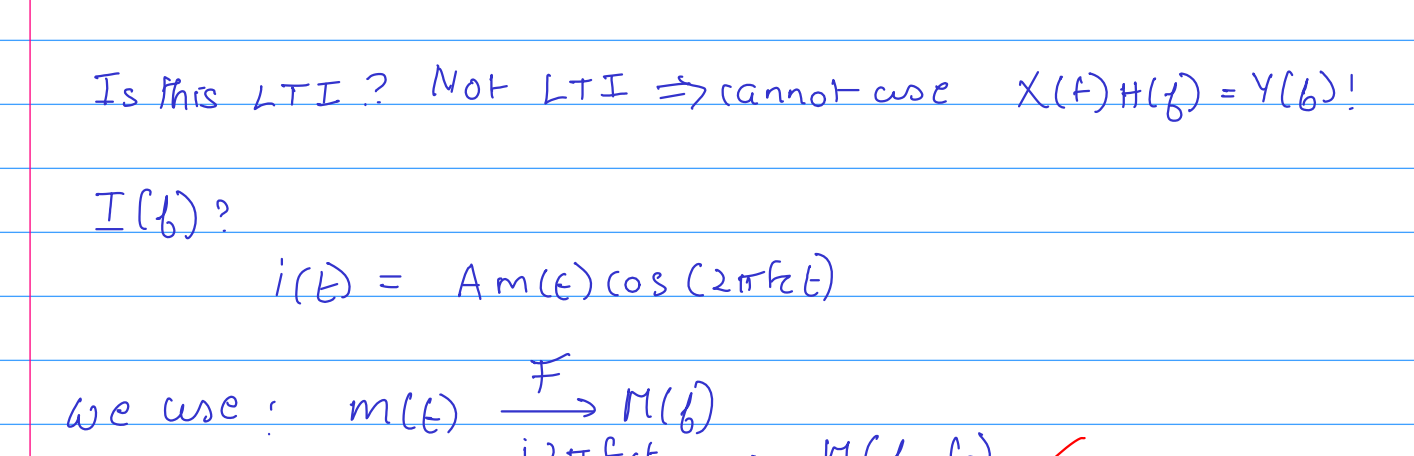 Is this LTI? Not LTI ⇒ cannot use X(f)H(f) = Y(f)!
I(f)?
i(t) = A m(t) cos(2πfct)
F
we use: m(t) → M(f)